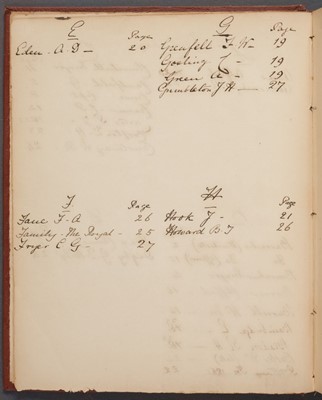 E Page
Eden. A. D— 20
G Page
Grenfell F. W— 19
Gosling C— 19
Green A— 19
Grumbleton J H— 27
F Page
Fane F. A 26
Family - The Royal - 25
Fryer E G— 27
H Page
Hook J— 21
Howard B T 26